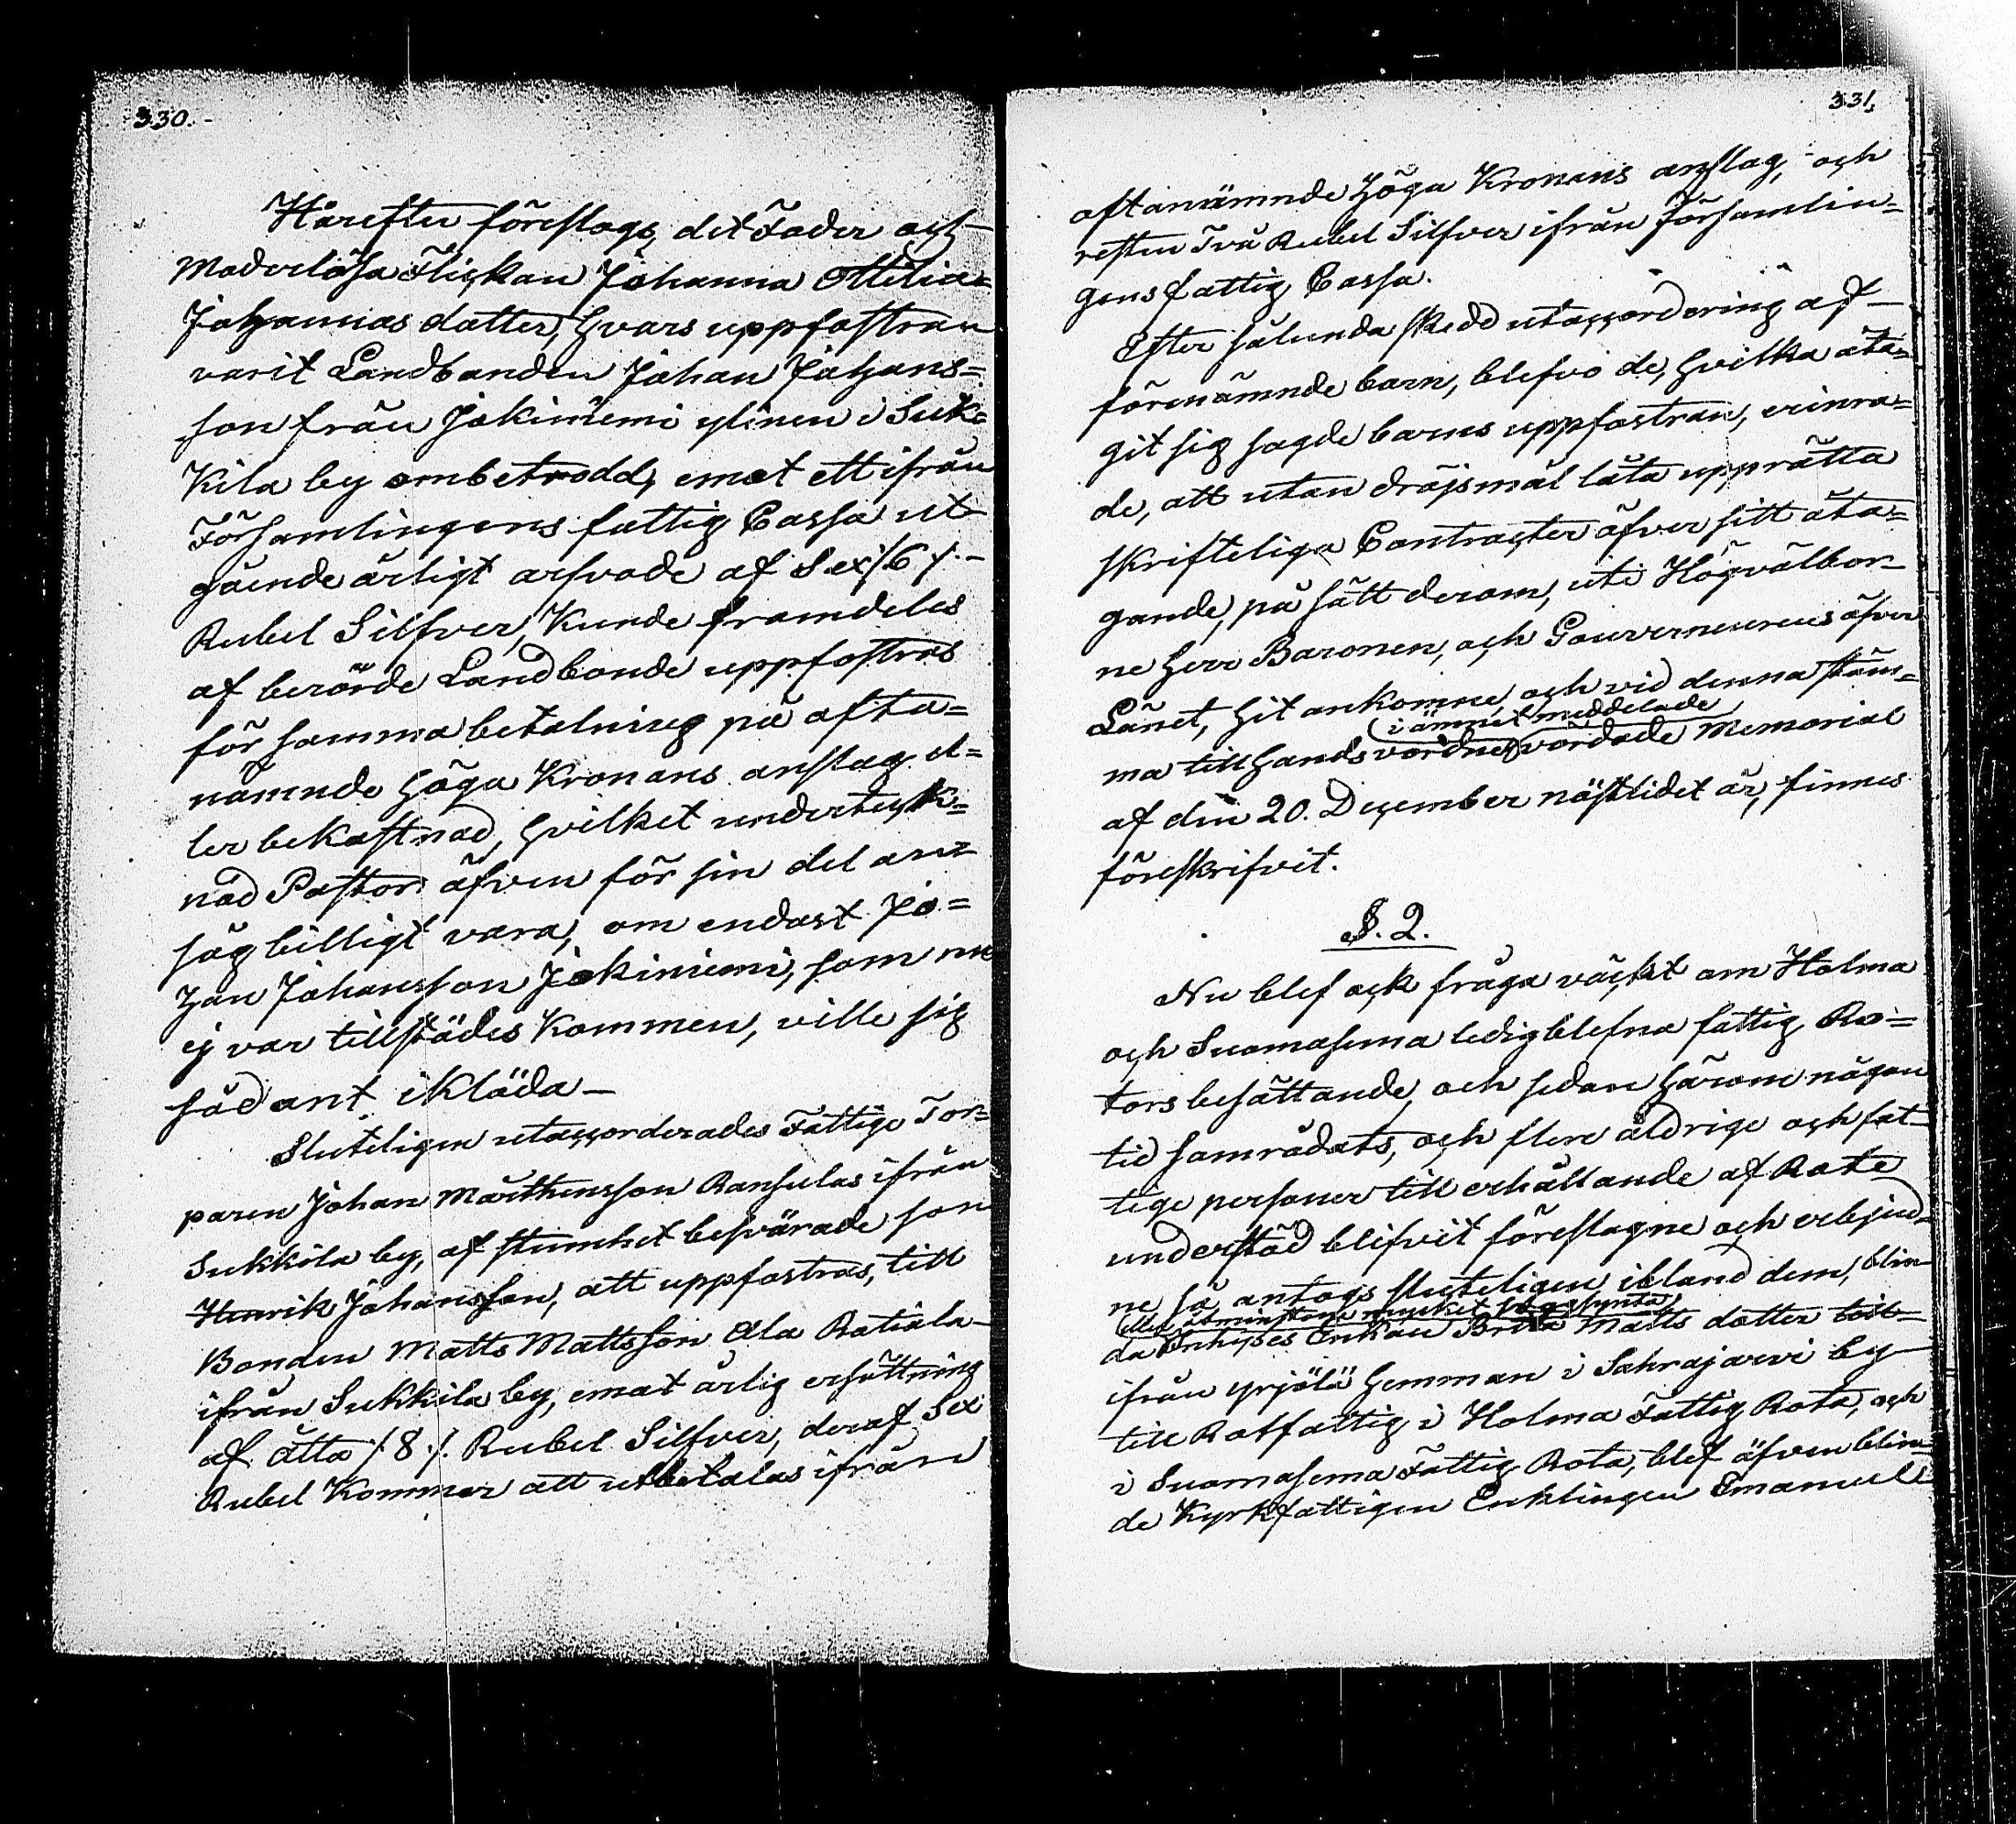 330.
Härefter föreslogs, det Fader och
Moderlösa Flickan Johanna Ottilia
Johannas dotter, hvars uppfostran
varit Landbonden Johan Johans=
son från Jokiniemi ylinen i Suk=
kila by ombetrodd, emot ett ifrån
Församlingens fattig Cassa ut
gående årligt arfvode af Sex /6/.
Rubel Silfver, kunde framdeles
af berörde Landbonde uppfostras
för samma betalning på ofta=
nämnde höga Kronans anslag el=
ler bekostnad, hvilket underteck=
nad Pastor äfven för sin del an=
såg billigt vara, om endast Jo=
han Johansson Jokiniemi, som nu
ej var tillstädes kommen, ville sig
sådant ikläda—
Sluteligen utaccorderades Fattige Tor=
paren Johan Mårthensson Ransulas ifrån
Sukkila by, af stumhet besvärade son
Henrik Johansson, att uppfostras, till
Bonden Matts Mattsson Ala Ratiala
ifrån Sukkila by, emot årlig ersättning
af åtta /:8:/. Rubel Silfver, deraf Sex
Rubel kommer att utbetalas ifrån
331.
oftanämnde höga Kronans anslag, och
resten Två Rubel Silfver ifrån Församlin=
gens fattig Cassa.
Efter sålunda skedd utaccordering af
förenämnde barn, blefvo de, hvilka åta=
git sig sagde barns uppfostran, erinra=
de, att utan dröjsmål låta upprätta
skrifteliga Contracter öfver sitt åta=
gande, på sätt derom, uti Högvälbor
ne Herr Baronen, och Gouverneurens öfver
Länet, hit ankomne, och vid denna stäm=
i ämnet meddelade
ma tillhands vordne, vördade Memorial
af den 20. December nästlidet år, finnes
föreskrifvit.
§. 2.
Nu blef ock fråga väckt om Holma
och Suomasema ledigblefna fattig Ro=
tors besättande, och sedan härom någon
tid samrådats, och flere åldrige och fat
tige personer till erhållande af Rote
understöd blifvit föreslagne och erbjud=
ne så antogs sluteligen ibland dem, blin
eller åtminstone mycket svagsynta
da Inhyses Enkan Brita Matts dotter
ifrån Yrjölä hemman i Sahrajärvi by
till Rotfattig i Holma Fattig Rota, och
i Suomasema Fattig Rota, blef äfven blin
de Kyrkfattigen Enklingen Emanuel